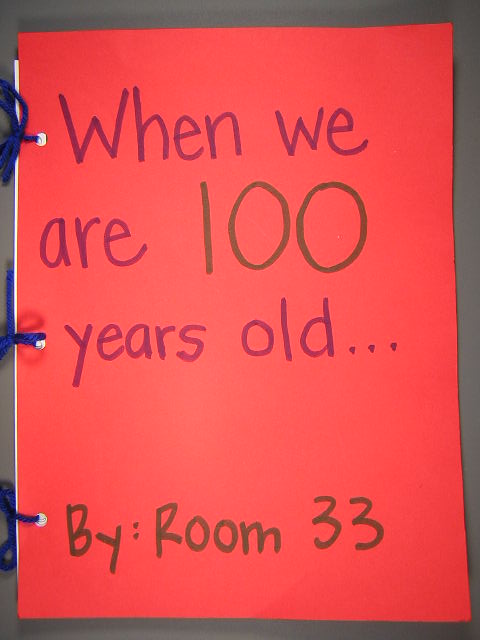 When we
are 100
years old...
By: Room 33